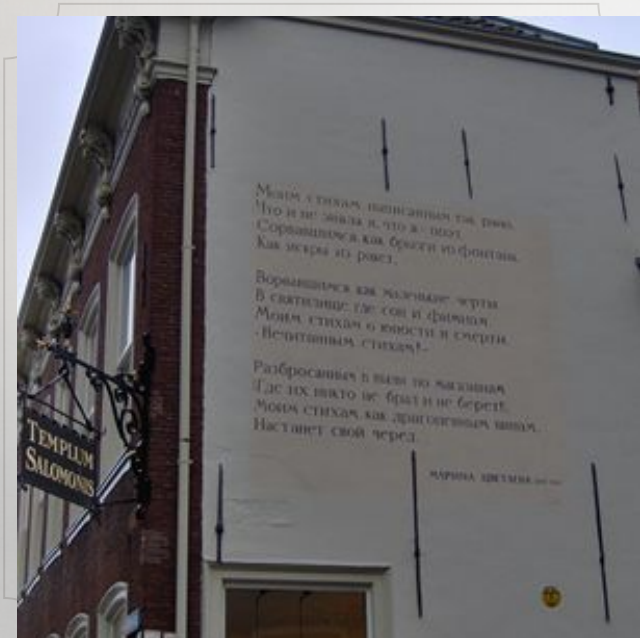 TEMPLUM
SALOMONIS
Моим стихам, написанным так рано,
Что и не знала я, что я - поэт,
Сорвавшимся, как брызги из фонтана,
Как искры из ракет,
Ворвавшимся, как маленькие черти,
В святилище, где сон и фимиам,
Моим стихам о юности и смерти,
-Нечитанным стихам!-
Разбросанным в пыли по магазинам
(Где их никто не брал и не берет!),
Моим стихам, как драгоценным винам,
Настанет свой черед.
МАРИНА ЦВЕТАЕВА